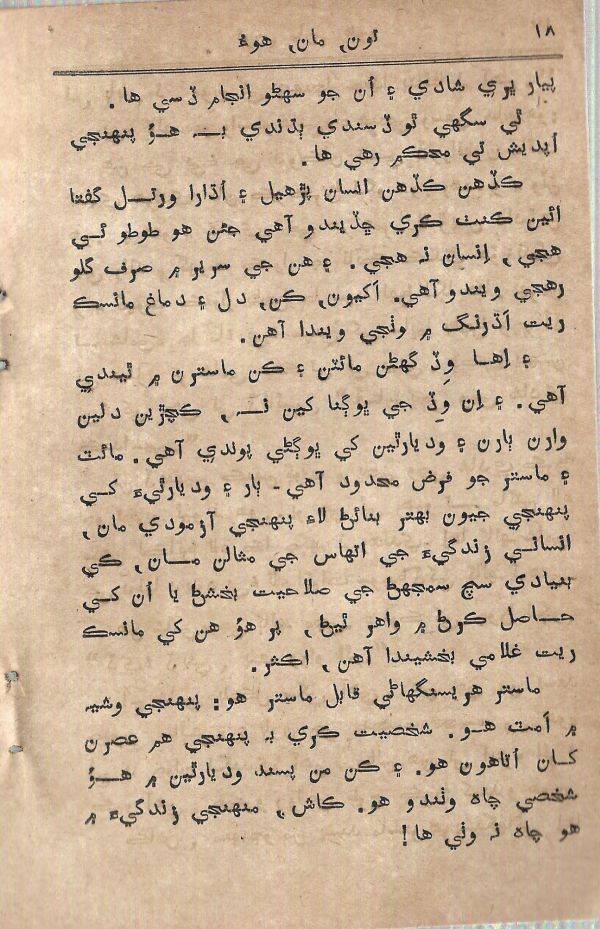 ١٨
تون، مان، هوءَ
پيار ڀري شادي ۽ اُن جو سهڻو انجام ڏسي ها.
ٿي سگهي ٿو ڏسندي ٻڌندي بہ هوءُ پنهنجي
اُپديش تي محڪم رهي ها.
ڪڏهن ڪڏهن انسان پڙهيل ۽ اُڌارا ورتل گفتا
ائين ڪنٺ ڪري ڇڏيندو آهي ڄڻ هو طوطو ئي
هجي، اِنسان نہ هجي. ۽ هن جي سرير ۾ صرف گلو
رهجي ويندو آهي. اکيون، ڪن، دل ۽ دماغ مانسڪ
ريت اَڌرنگ ۾ وٺجي ويندا آهن.
۽ اِها وِڏ گهڻن مائٽن ۽ ڪن ماسترن ۾ ٿيندي
آهي. ۽ اِن وِڏ جي ڀوڳنا کين نہ، ڪچڙين دلين
وارن ٻارن ۽ وديارٿين کي ڀوڳڻي پوندي آهي. مائٽ
۽ ماستر جو فرض محدود آهي - ٻار ۽ وديارٿيءَ کي
پنهنجي جيون بهتر بنائڻ لاءِ پنهنجي آزمودي مان،
انساني زندگيءَ جي اتهاس جي مثالن مان، ڪي
بنيادي سچ سمجهڻ جي صلاحيت بخشڻ يا اُن کي
حاصل ڪرڻ ۾ واهر ٿيڻ، پر هوءُ هن کي مانسڪ
ريت غلامي بخشيندا آهن، اڪثر.
ماستر هريسنگهاڻي قابل ماستر هو: پنهنجي وشيہ
۾ اُمت هو. شخصيت ڪري بہ پنهنجي هم عصرن
کان اُتاهون هو. ۽ ڪن من پسند وديارٿين ۾ هوءُ
شخصي چاهہ وٺندو هو. ڪاش، منهنجي زندگيءَ ۾
هو چاهہ نہ وٺي ها!